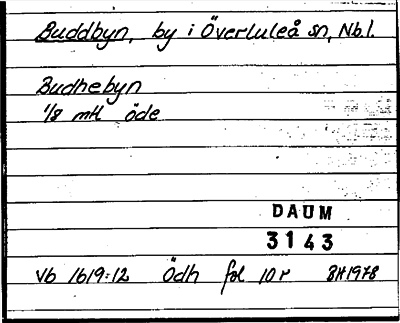 Buddbyn, by i Överluleå sn, Nb.l.
Budhebyn
1/8 mtl öde
DAUM
3143
Vb 1619:12 Ödh fol 10 r BH 1978